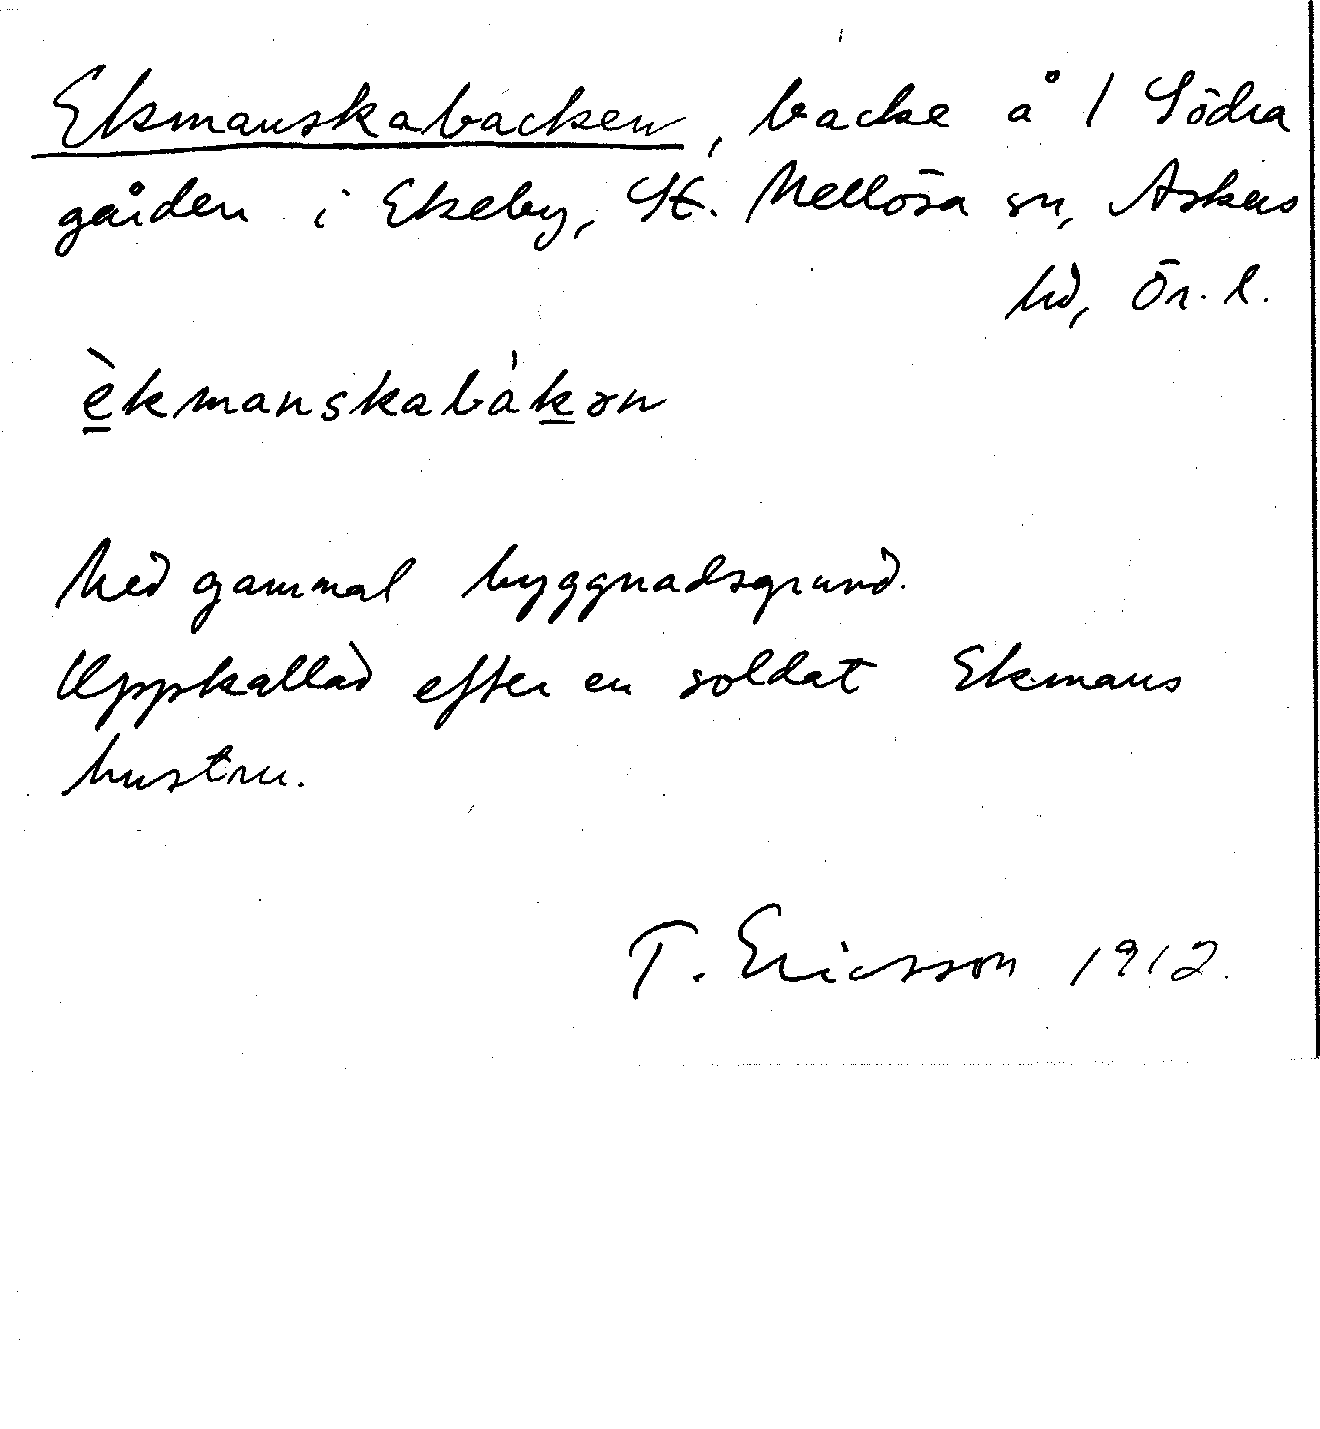 Ekmanskabacken, backe å 1 Södra
gården i Ekeby, St. Mellösa sn, Askers
hd, Ör. l.
èkmanskabákən
Med gammal byggnadsgrund.
Uppkallad efter en soldat Ekmans
hustru.
T. Ericsson 1912.